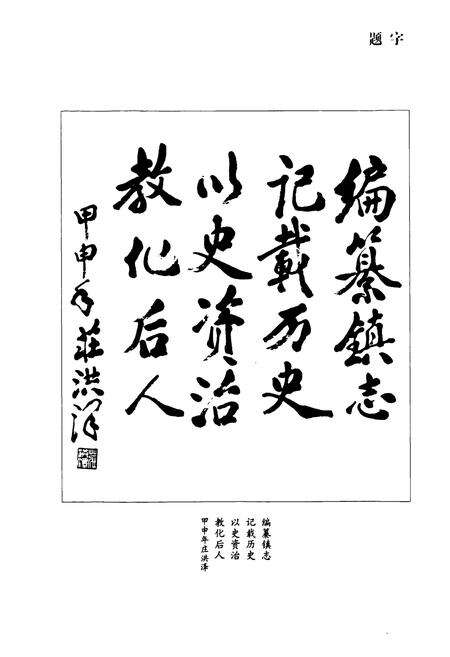 题字
编纂鎮志
记載历史
以史资治
教化后人
甲申年莊洪泽
编纂镇志
记载历史
以史资治
教化后人
甲申年庄洪泽